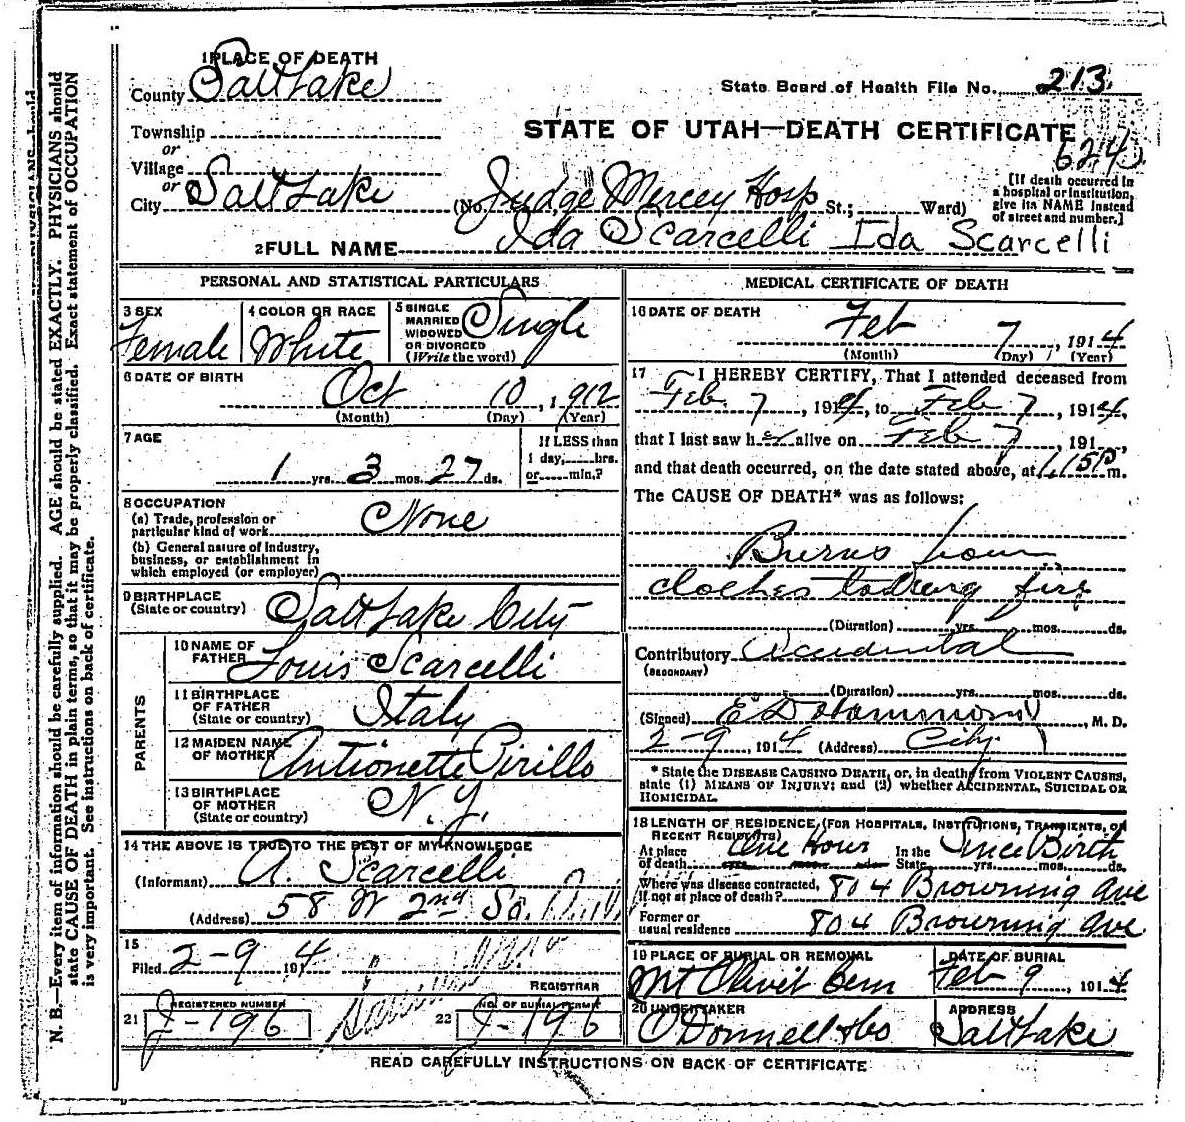 1 PLACE OF DEATH
County Salt Lake
State Board of Health File No. 213
Township
or
STATE OF UTAH—DEATH CERTIFICATE
Village
or
City Salt Lake (No. Judge Mercey Hosp St.; Ward)
[If death occurred in
a hospital or institution,
give its NAME instead
of street and number.]
2 FULL NAME Ida Scarcelli Ida Scarcelli
PERSONAL AND STATISTICAL PARTICULARS
3 SEX
Female
4 COLOR OR RACE
White
5 SINGLE
MARRIED
WIDOWED
OR DIVORCED
(Write the word)
Single
6 DATE OF BIRTH
Oct 10, 1912
(Month) (Day) (Year)
7 AGE
1 yrs. 3 mos. 27 ds.
If LESS than
1 day, hrs.
or min.?
8 OCCUPATION
(a) Trade, profession or
particular kind of work None
(b) General nature of industry,
business, or establishment in
which employed (or employer)
9 BIRTHPLACE
(State or country) Salt Lake City
PARENTS
10 NAME OF
FATHER Louis Scarcelli
11 BIRTHPLACE
OF FATHER
(State or country) Italy
12 MAIDEN NAME
OF MOTHER Antionette Pirillo
13 BIRTHPLACE
OF MOTHER
(State or country) N. Y.
14 THE ABOVE IS TRUE TO THE BEST OF MY KNOWLEDGE
(Informant) A. Scarcelli
(Address) 58 W 2nd So.
15
Filed 2-9 1914
REGISTRAR
21 REGISTERED NUMBER
J-196
22 NO. OF BURIAL PERMIT
J-196
MEDICAL CERTIFICATE OF DEATH
16 DATE OF DEATH
Feb 7, 1914
(Month) (Day) (Year)
17 I HEREBY CERTIFY, That I attended deceased from
Feb. 7, 1914, to Feb 7, 1914,
that I last saw her alive on Feb 7, 191 ,
and that death occurred, on the date stated above, at 1.15P m.
The CAUSE OF DEATH* was as follows:
Burns from
clothes taking fire
(Duration) yrs. mos. ds.
Contributory Accidental
(SECONDARY)
(Duration) yrs. mos. ds.
(Signed) E D Hammond, M. D.
2-9, 1914 (Address) City
* State the DISEASE CAUSING DEATH, or, in deaths from VIOLENT CAUSES,
state (1) MEANS OF INJURY; and (2) whether ACCIDENTAL, SUICIDAL OR
HOMICIDAL.
18 LENGTH OF RESIDENCE, (FOR HOSPITALS, INSTITUTIONS, TRANSIENTS, OR
RECENT RESIDENTS)
At place
of death One Hour In the
State Since Birth yrs. mos. ds.
Where was disease contracted,
if not at place of death? 804 Browning Ave
Former or
usual residence 804 Browning Ave
19 PLACE OF BURIAL OR REMOVAL
Mt Olivet Cem
DATE OF BURIAL
Feb 9, 1914
20 UNDERTAKER
O'Donnell & Co
ADDRESS
Salt Lake
READ CAREFULLY INSTRUCTIONS ON BACK OF CERTIFICATE
N. B.—Every item of information should be carefully supplied. AGE should be stated EXACTLY. PHYSICIANS should
state CAUSE OF DEATH in plain terms, so that it may be properly classified. Exact statement of OCCUPATION
is very important. See instructions on back of certificate.